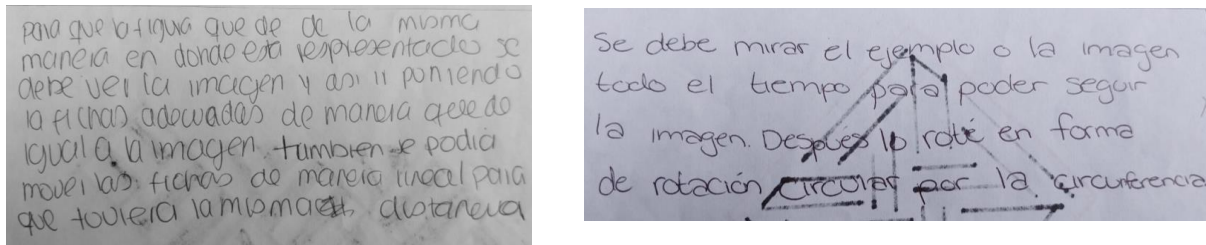 para que la figura que de de la misma
manera en donde esta respresentado se
debe ver la imagen y asi ir poniendo
la fichas adecuadas de manera quede
igual a la imagen. tambien se podia
mover las fichas de manera lineal para
que tuviera la misma distancia
Se debe mirar el ejemplo o la imagen
todo el tiempo para poder seguir
la imagen. Después lo roté en forma
de rotación circular por la circunferencia